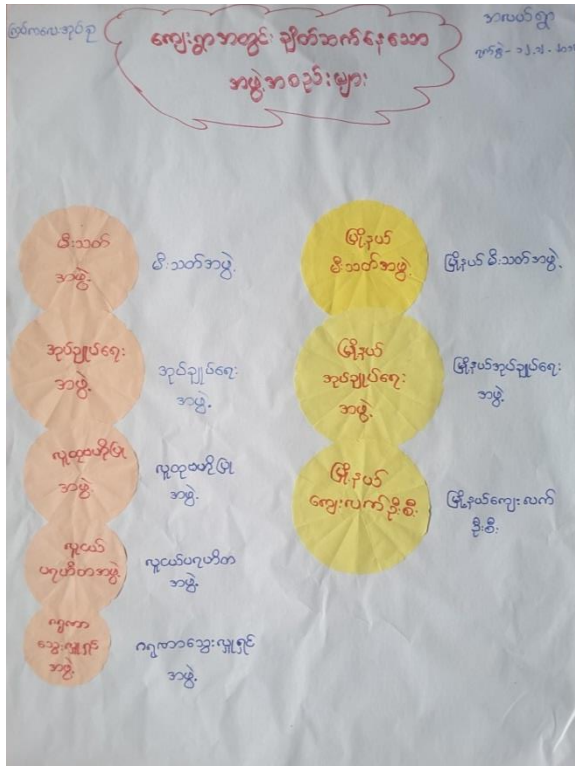 ကြပ်ကလေးအုပ်စု
အလယ်ရွာ
ကျေးရွာအတွင်း ချိတ်ဆက်နေသော
အဖွဲ့အစည်းများ
ရက်စွဲ -
မီးသတ်
အဖွဲ့
မီးသတ်အဖွဲ့
အုပ်ချုပ်ရေး
အဖွဲ့
အုပ်ချုပ်ရေး
အဖွဲ့
လူထုဗဟိုပြု
အဖွဲ့
လူထုဗဟိုပြု
အဖွဲ့
လူငယ်
ပရဟိတအဖွဲ့
လူငယ်ပရဟိတ
အဖွဲ့
ဂရုဏာ
သွေးလှူရှင်
အဖွဲ့
ဂရုဏာသွေးလှူရှင်
အဖွဲ့
မြို့နယ်
မီးသတ်အဖွဲ့
မြို့နယ် မီးသတ်အဖွဲ့
မြို့နယ်
အုပ်ချုပ်ရေး
အဖွဲ့
မြို့နယ်အုပ်ချုပ်ရေး
အဖွဲ့
မြို့နယ်
ကျေးလက်ဦးစီး
မြို့နယ်ကျေးလက်
ဦးစီး